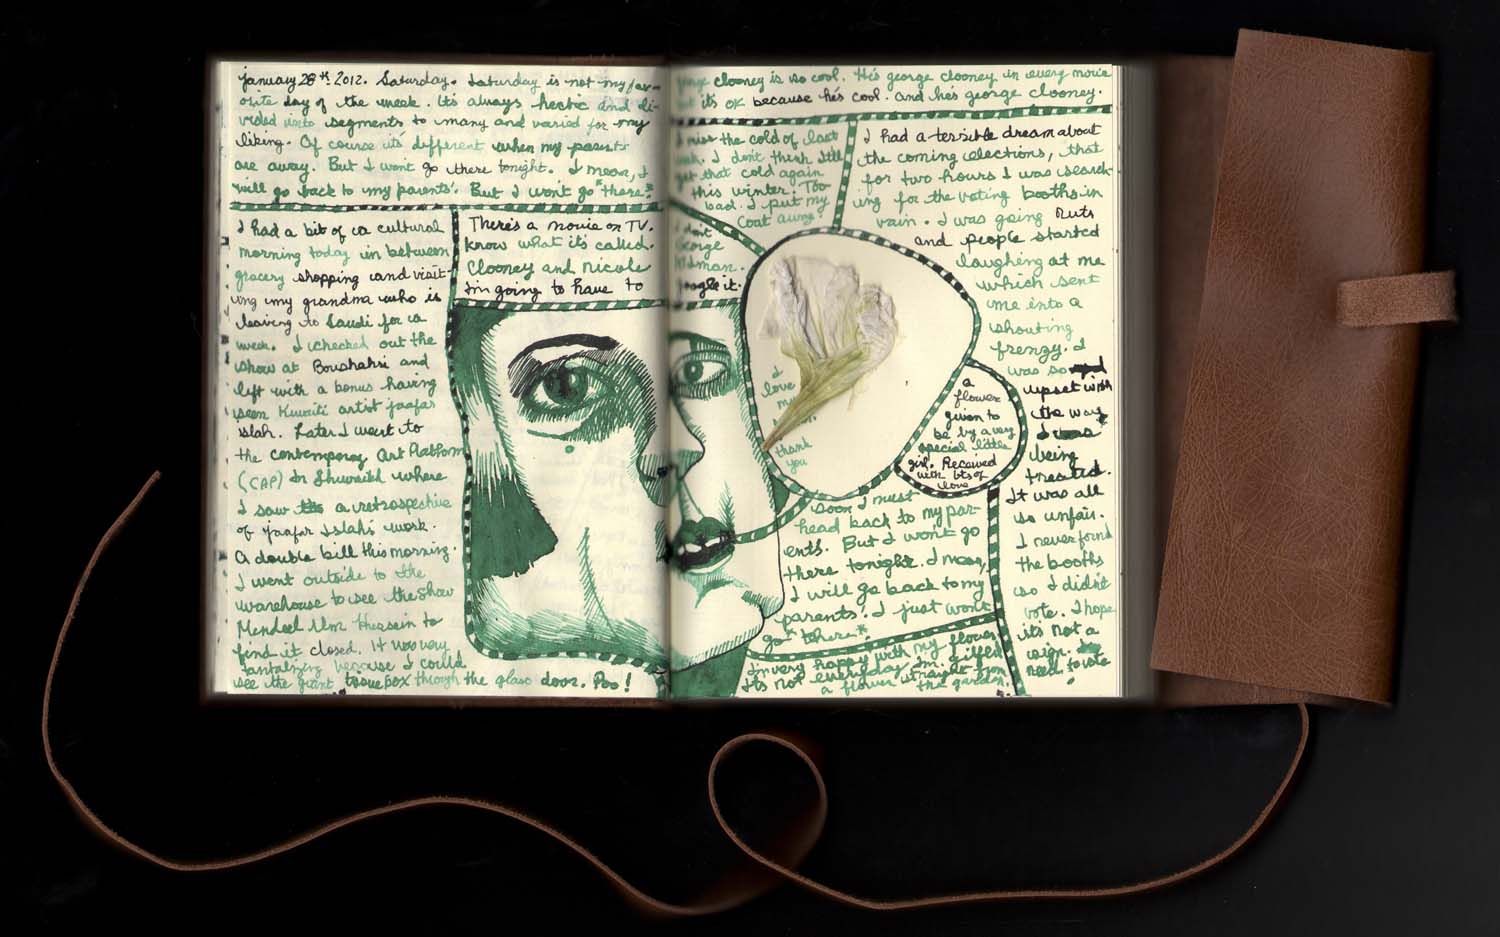 january 28th 2012. Saturday. Saturday is not my fav-
orite day of the week. It's always hectic and di-
vided into segments to many and varied for my
liking. Of course it's different when my parents
are away. But I wont go there tonight. I mean, I
will go back to my parents'. But I wont go "there."
I had a bit of a cultural
morning today in between
grocery shopping and visit-
ing my grandma who is
leaving to Saudi for a
week. I checked out the
show at Boushahri and
left with a bonus having
seen Kuwaiti artist jaafar
islah. Later I went to
the contemporary Art Platform
(CAP) In Shuwaikh where
I saw a retrospective
of jaafar Islahs work.
A double bill this morning.
I went outside to the
warehouse to see the show
Mendeel Um
find it closed. It was very
tantalizing because I could
see the giant tissue box through the glass door. Poo!
There's a movie on TV.
know what it's called.
Clooney and Nicole
Im going to have to
I don't
George
Kidman.
google it.
george clooney is so cool. He's george clooney in every movie
but it's OK because he's cool. and he's george clooney.
I miss the cold of last
week. I don't think I'll
get that cold again
this winter. Too
bad. I put my
coat away.
I had a terrible dream about
the coming elections, that
for two hours I was search-
ing for the voting booths in
vain. I was going nuts
and people started
laughing at me
which sent
me into a
shouting
frenzy. I
was so
upset with
the way
I was
being
treated.
It was all
so unfair.
I never found
the booths
so I didn't
vote. I hope
its not a
sign. I
need to vote
!
I
love
my
thank
you
a
flower
given to
be by a very
special little
girl. Received
with lots of
love
Soon I must
head back to my par-
ents. But I won't go
there tonight. I mean,
I will go back to my
parents'. I just won't
go "there".
I'm very happy with my flower.
It's not everyday I'm gifted
a flower straight from
the garden.